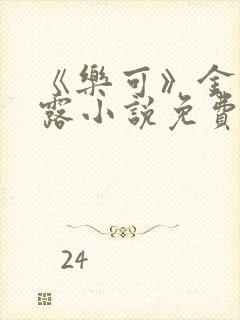 《樂可》金
露小說免費
24